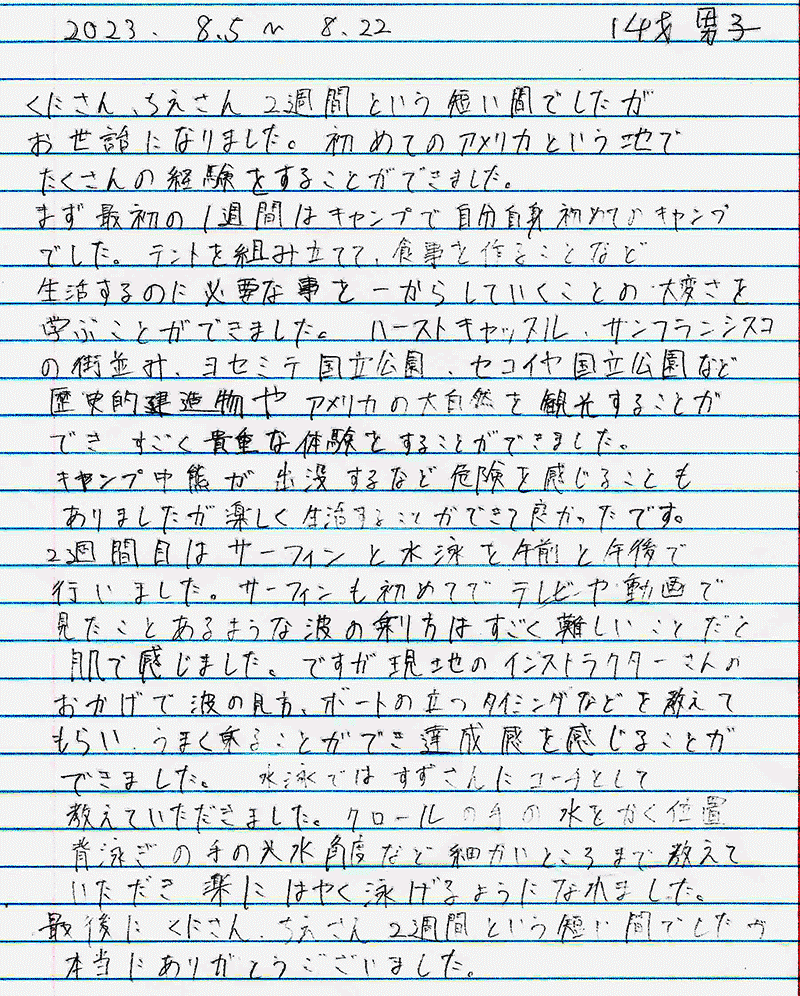 2023. 8.5〜 8.22 14才 男子
くにさん、ちえさん 2週間という短い間でしたが
お世話になりました。初めてのアメリカという地で
たくさんの経験をすることができました。
まず最初の1週間はキャンプで自分自身初めてのキャンプ
でした。テントを組み立てて、食事を作ることなど
生活するのに必要な事を一からしていくことの大変さを
学ぶことができました。ハーストキャッスル、サンフランシスコ
の街並み、ヨセミテ国立公園、セコイヤ国立公園など
歴史的建造物やアメリカの大自然を観光することが
でき すごく貴重な体験をすることができました。
キャンプ中熊が出没するなど危険を感じることも
ありましたが楽しく生活することができて良かったです。
2週間目はサーフィンと水泳を午前と午後で
行いました。サーフィンも初めてで テレビや動画で
見たことあるような波の乗り方はすごく難しいことだと
肌で感じました。ですが現地のインストラクターさんの
おかげで波の見方、ボートの立つタイミングなどを教えて
もらい、うまく乗ることができ達成感を感じることが
できました。 水泳ではすずさんにコーチとして
教えていただきました。クロールの手の水をかく位置
背泳ぎの手の入水角度など細かいところまで教えて
いただき 楽にはやく泳げるようになれました。
最後に くにさん、ちえさん 2週間という短い間でしたが
本当にありがとうございました。